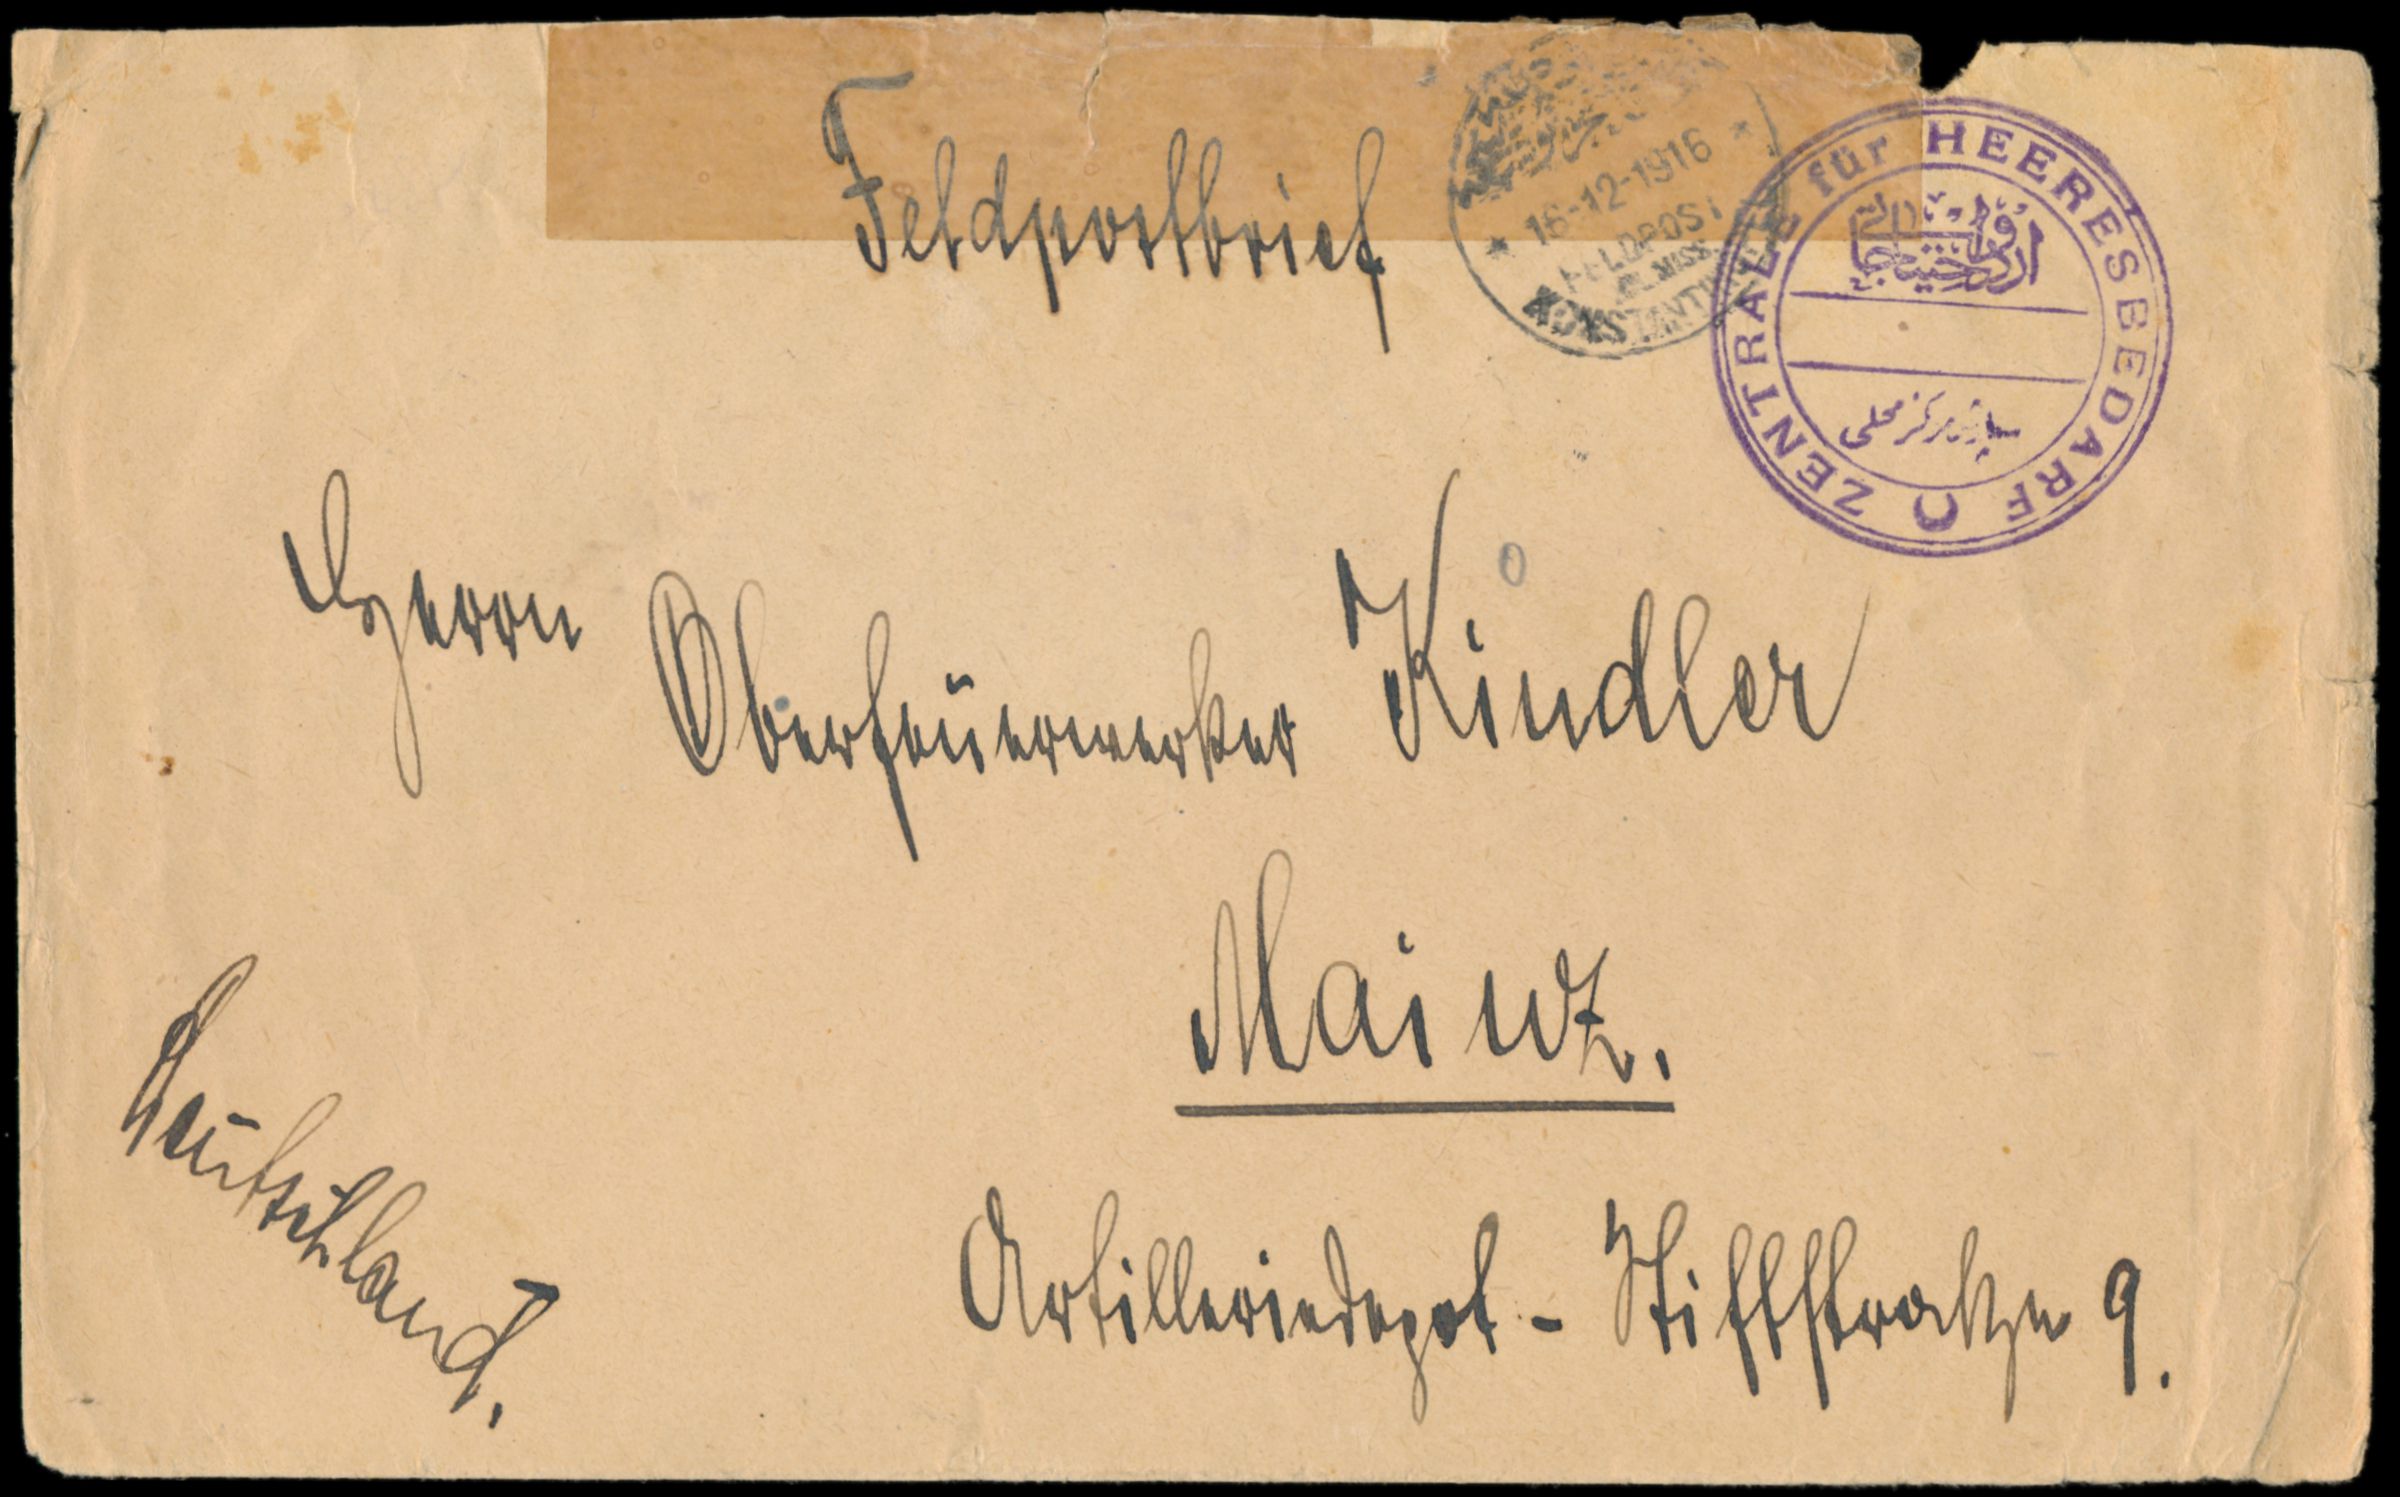 Feldpostbrief
16-12-1916
FELDPOST
MIL. MISS.
KONSTANTINOPEL
ZENTRALE für HEERESBEDARF
Herrn
Oberfeuerwerker Kindler
Mainz.
Artilleriedepot - Stiftstraße 9.
Deutschland.